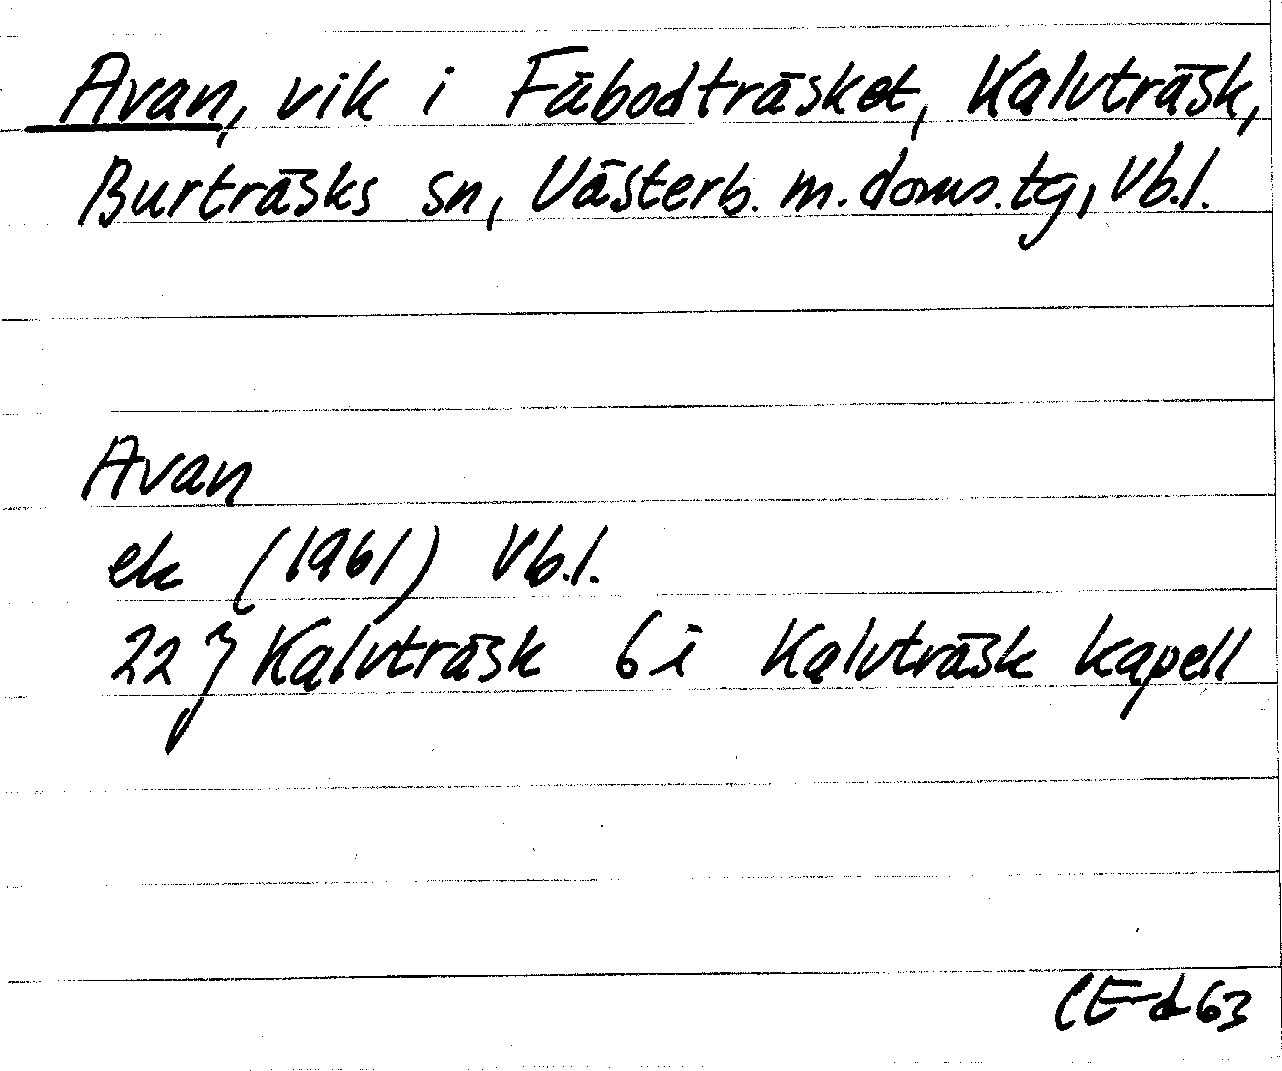 Avan, vik i Fäbodträsket, Kalvträsk,
Burträsks sn, Västerb. m. doms. tg, Vb.l.
Avan
ek (1961) Vb.l.
22 J Kalvträsk 6 i Kalvträsk kapell
CE-d 63